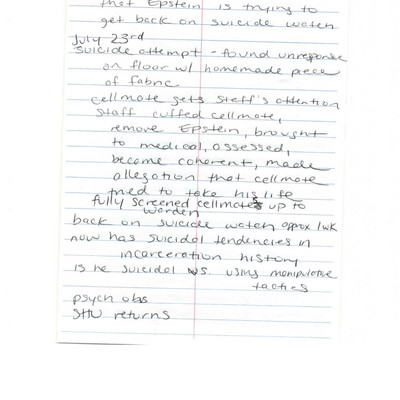 that Epstein is trying to
get back on suicide watch
July 23rd
suicide attempt - found unresponse
on floor w/ homemade piece
of fabric
cellmate gets staff's attention
staff cuffed cellmate,
remove Epstein, brought
to medical, assessed,
became coherent, made
allegation that cellmate
tried to take his life
fully screened cellmates up to
warden
back on suicide watch approx 1wk
now has suicidal tendencies in
incarceration history
is he suicidal vs. using manipulative
tactics
psych obs
SHU returns